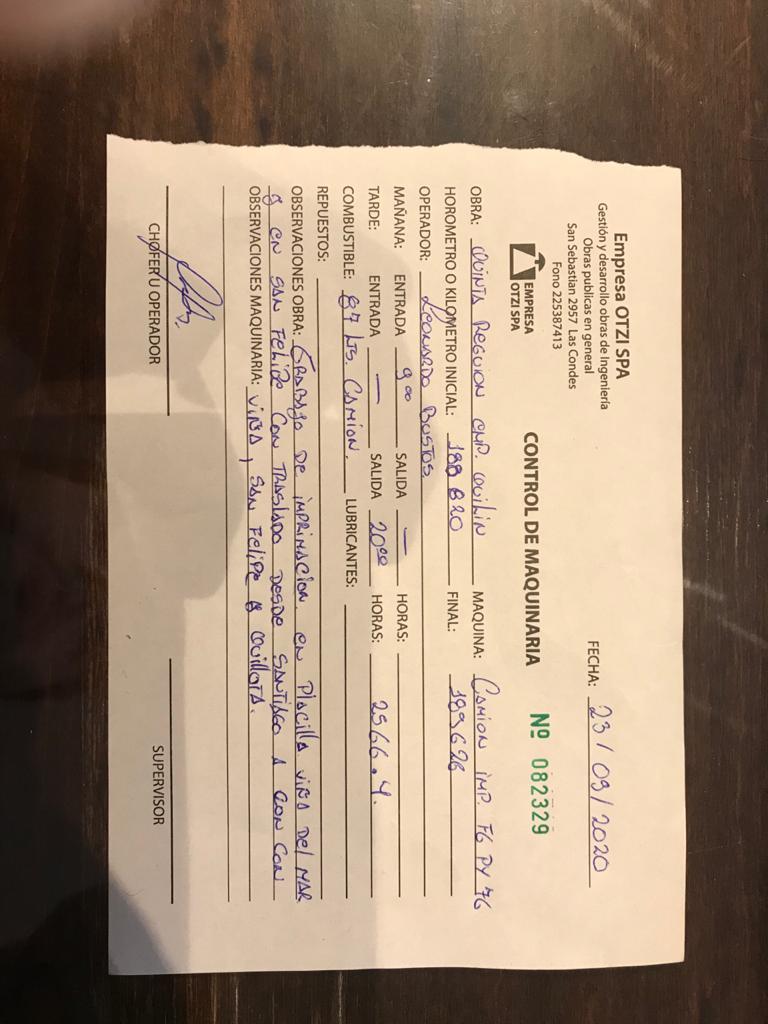 Empresa OTZI SPA
Gestión y desarrollo obras de Ingeniería
Obras publicas en general
San Sebastian 2957 Las Condes
Fono 225387413
FECHA: 23/09/2020
EMPRESA
OTZI SPA
CONTROL DE MAQUINARIA
Nº 082329
OBRA: QUINTA REGUION CMP. QUILIN MAQUINA: CAMION IMP. FG PY 76
HOROMETRO O KILOMETRO INICIAL: 188 820 FINAL: 189626
OPERADOR: Leonardo Bustos
MAÑANA: ENTRADA 9 00 SALIDA — HORAS:
TARDE: ENTRADA — SALIDA 20 00 HORAS: 2566.4.
COMBUSTIBLE: 87 Lts. CAMION. LUBRICANTES:
REPUESTOS:
OBSERVACIONES OBRA: TRABAJO DE IMPRIMACION EN PlACILLA VIÑA Del MAR
y EN SAN FELIPE CON TRASLADO DESDE SANTIAGO A CON CON
OBSERVACIONES MAQUINARIA: VIÑA, SAN FELIPE y QUILLOTA.
CHOFER U OPERADOR
SUPERVISOR